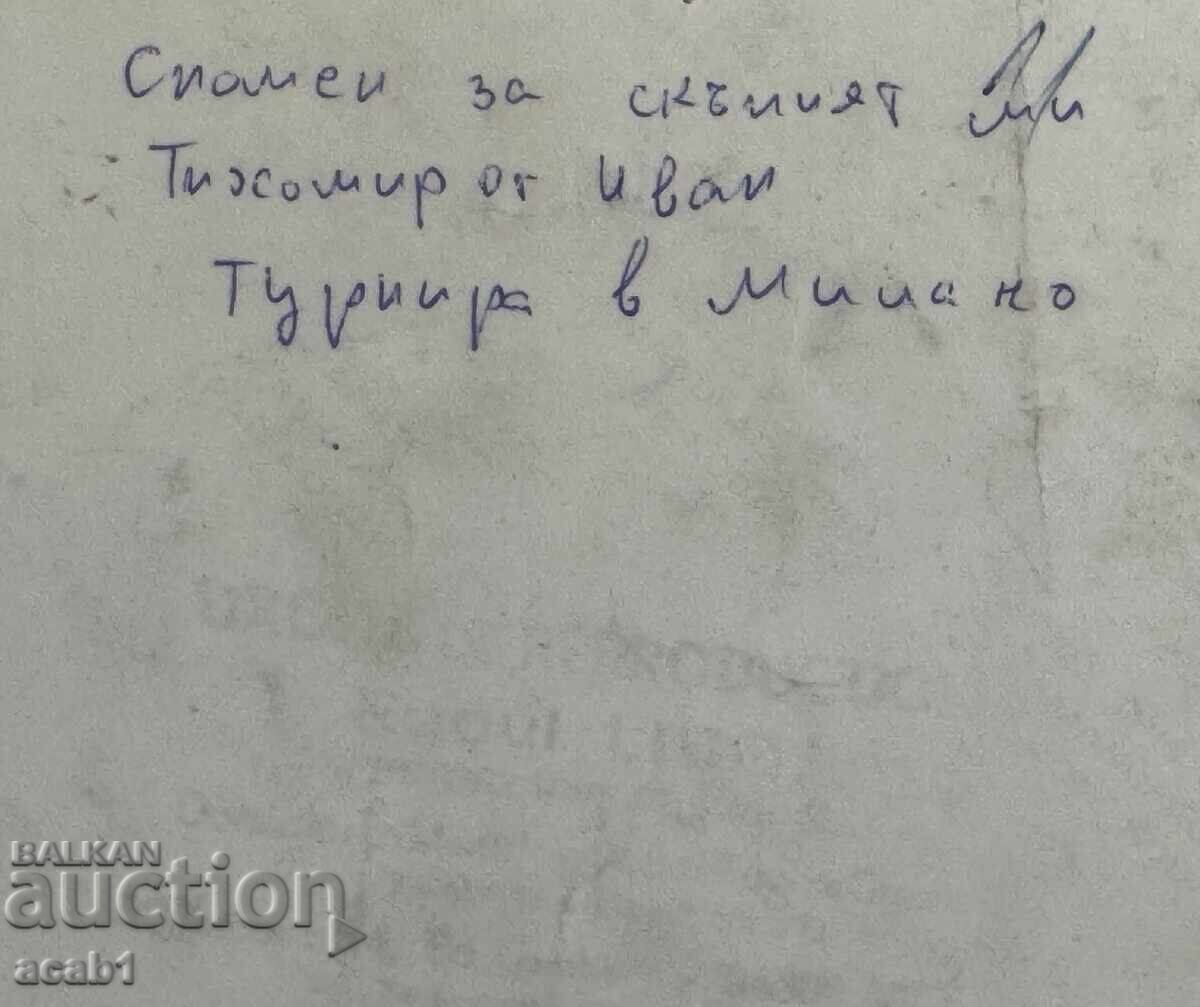 Спомен за скъпият ми
Тихомир от Иван
Турнира в Милано
BALKAN
auction
acab1